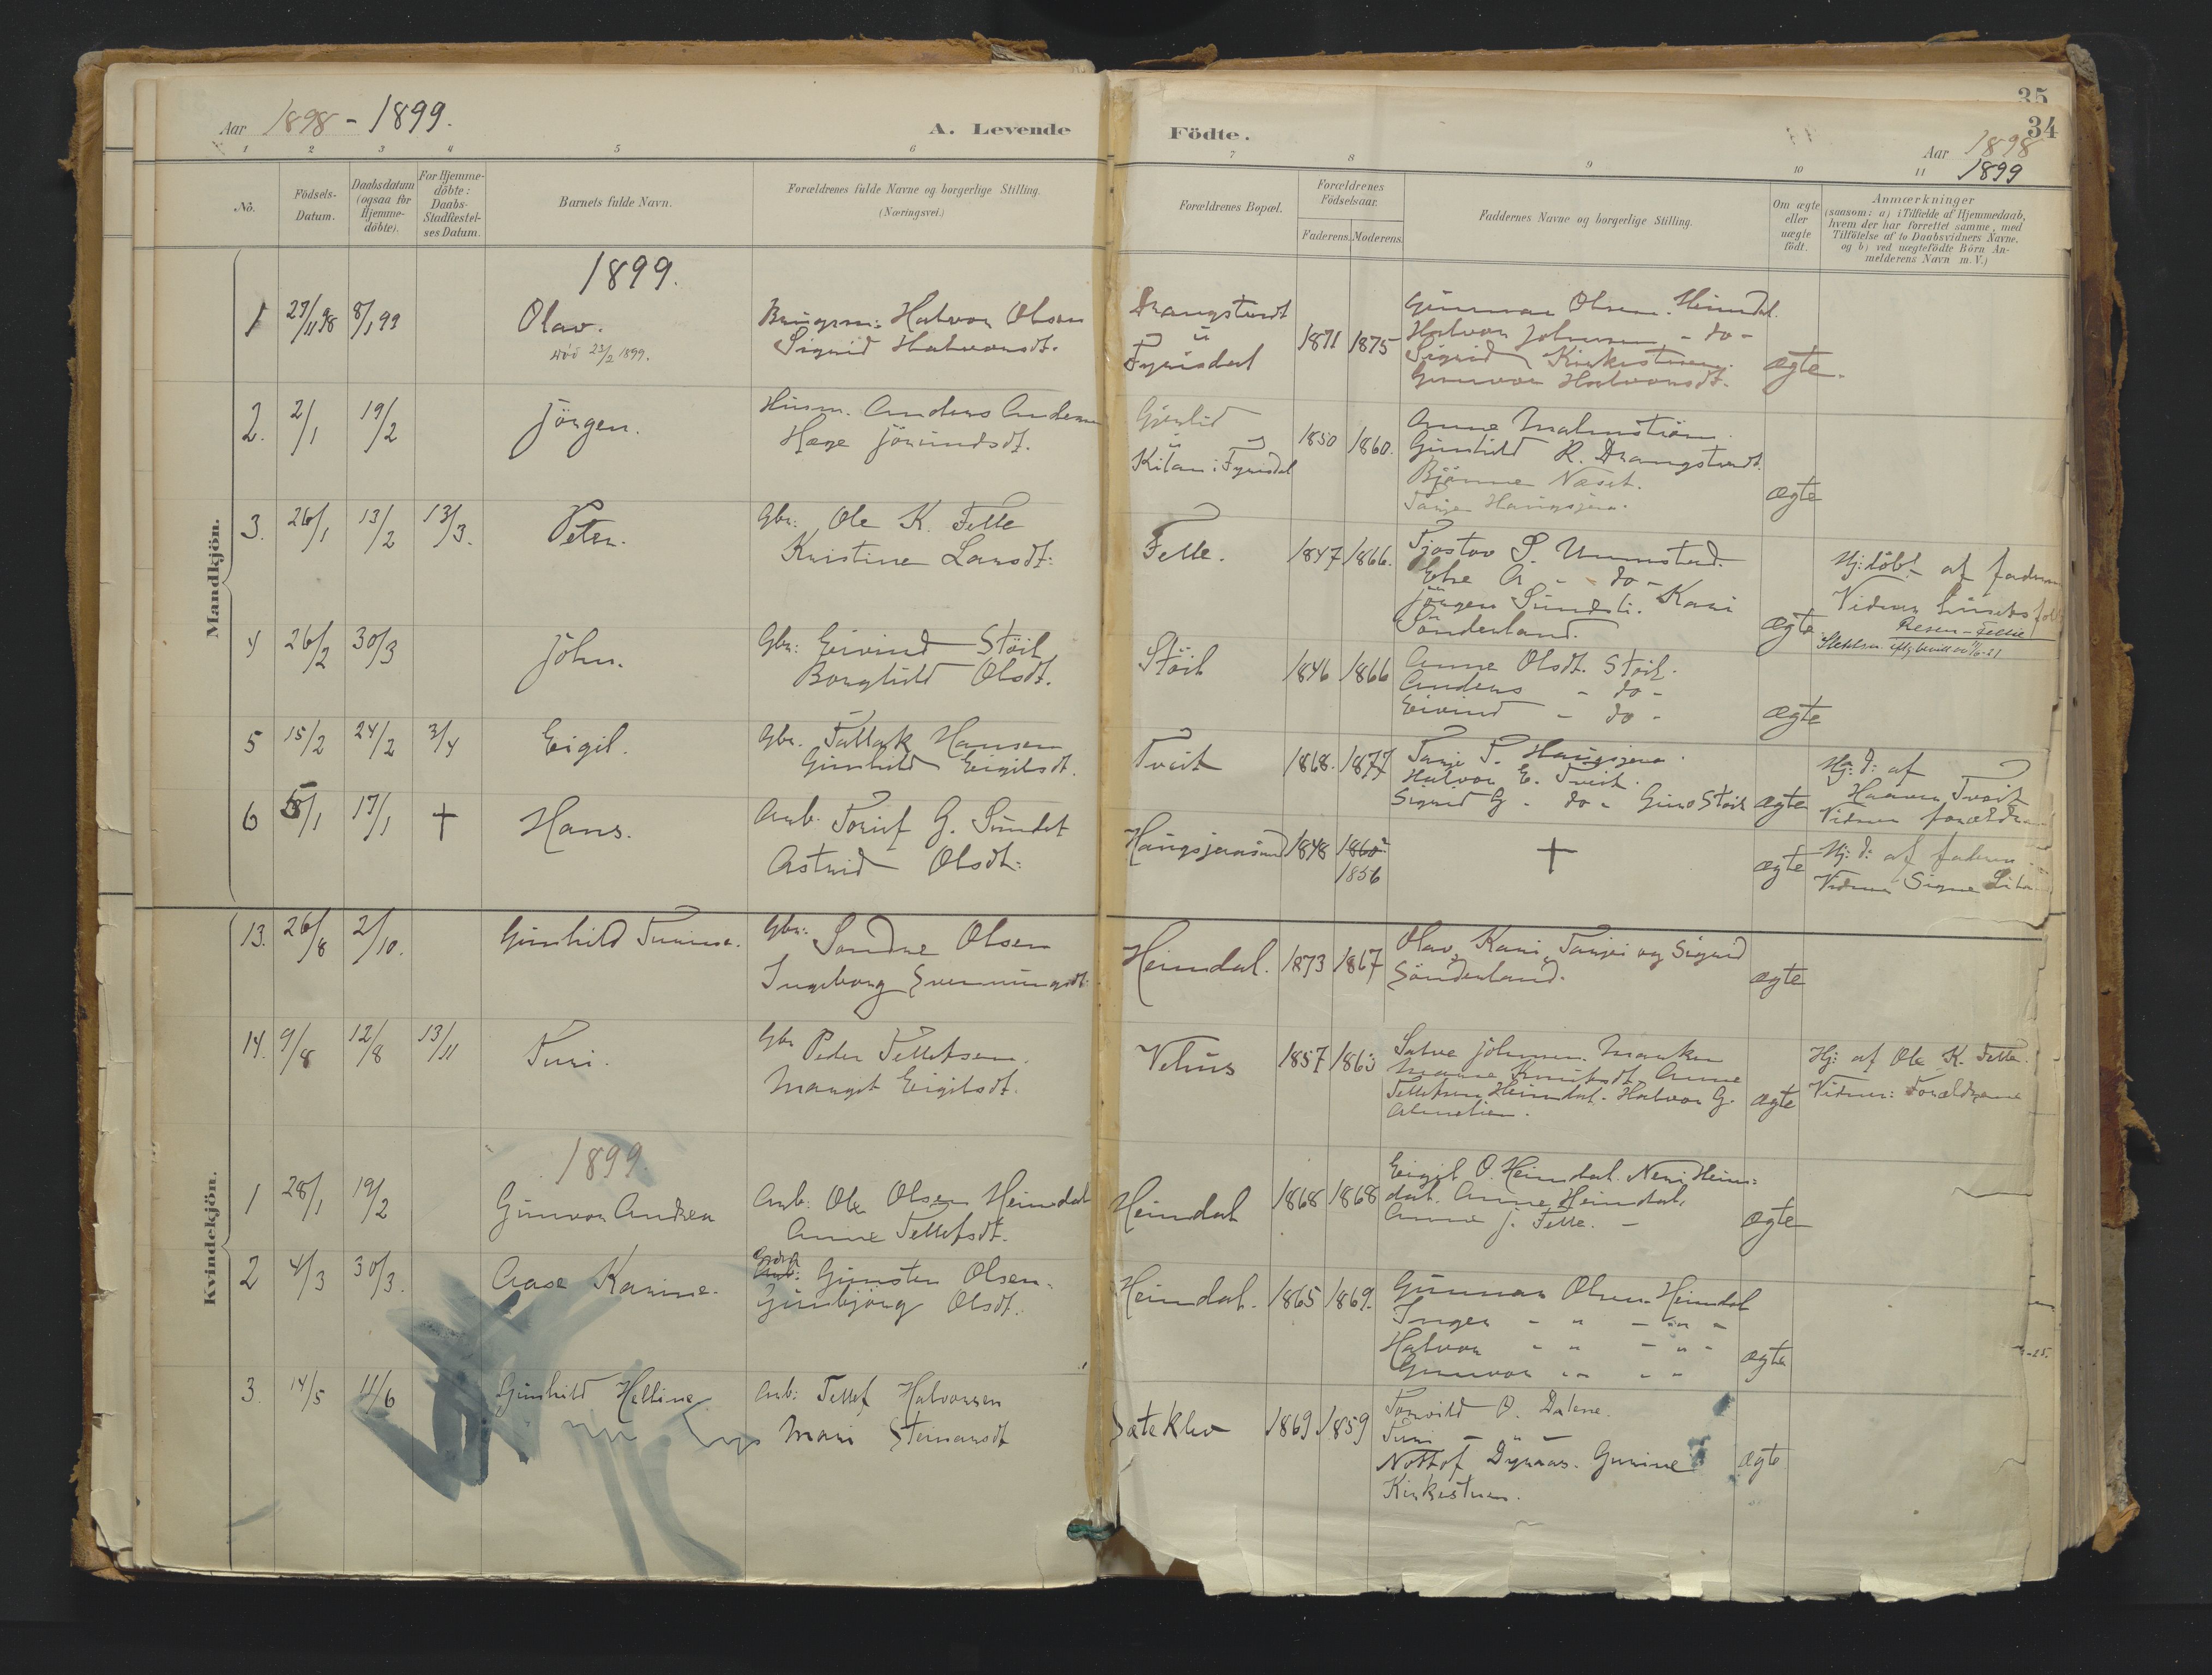 Aar 1898 - 1899.
A. Levende Födte.
35
34
Aar 1898
1899
1 2 3 4 5 6 7 8 9 10 11
No.
Födsels-Datum.
Daabsdatum (ogsaa for Hjemme-döbte).
For Hjemme-döbte: Daabs-Stadfæstel-ses Datum.
Barnets fulde Navn.
Forældrenes fulde Navne og borgerlige Stilling.
(Næringsvei.)
Forældrenes Bopæl.
Forældrenes Födselsaar.
Faderens. Moderens.
Faddernes Navne og borgerlige Stilling.
Om ægte eller uægte födt.
Anmærkninger
(saasom: a) i Tilfælde af Hjemmedaab,
hvem der har forrettet samme, med
Tilföielse af to Daabsvidners Navne,
og b) ved uægtefödte Börn An-
melderens Navn m. V.)
Mandkjön.
1899.
1 27/11 98 8/1 99 Olav. Halvor Olsen Drangstveit 1871 1875 Gunnar Olsen Heimdal.
död 23/2 1899. Sigrid Halvorsdt. i Halvor Johnsen - do -
Fyrisdal Sigrid Kirkestuen.
Gunvor Halvorsdt. ægte.
2. 2/1 19/2 Jörgen. Husm. Anders Andersen 1850 1860. Anne Malmström.
Hæge Jörundsdt. i Gunhild R. Drangstveit.
Kilan i Fyrisdal Bjönne Næset.
ægte
3. 26/1 13/2 13/3. Peter. Gbr: Ole K. Felle Felle. 1847 1866. Tjostov S. Unnestad.
Kristine Larsdt: Else A - do - Hj: döbt af faderen
Jörgen Sundsli. Kari Vidner husets folk
Sönderland. ægte. Resen-Fellie
4 26/2 30/3 John. Gbr: Eivind Stöil Stöil 1846 1866 Anne Olsdt. Stöil.
Borghild Olsdt. Anders - do -
Eivind - do - ægte
5 15/2 24/2 3/4 Eigil. Gbr. Tallak Hansen Tveit 1868. 1877 Tarje T. Haugsjena.
Gunhild Eigilsdt. Halvor E. Tveit. Hj: d: af
Sigrid G - do - Stöil ægte Vidner forældrene
6 5/1 17/1 † Hans. Arb. Torjuf G. Sundet Haugsjenasund 1848 1860 † ægte Hj: d: af faderen
Astrid Olsdt: 1856 Vidner Signe
Kvindekjön.
13. 26/8 2/10. Gunhild Turine. Gbr: Sondre Olsen Heimdal. 1873 1867 Olav, Kari, Tarjei og Sigrid
Ingeborg Svenningsdt: Sönderland. ægte
14. 9/8 12/8 13/11 Turi. Gbr Peder Tellefsen. Velius 1857 1863 Salve Johnsen.
Margit Eigilsdt. Marie Knutsdt. Anne Hj: af Ole K. Felle.
Tellefsen Heimdal. Halvor G. ægte Vidner: Forældrene
1899.
1 28/1 19/2 Gunvor Andrea Arb: Ole Olsen Heimdal Heimdal 1868 1868 Eigil O. Heimdal. Neri Heim:
Anne Tellefsdt. dal. Anne Heimdal.
Anne J. Felle. - ægte
2 4/3 30/3. Aase Karine. Arb: Gunsten Olsen. Heimdal. 1865 1869. Gunnar Olsen Heimdal
Gunbjörg Olsdt. Inger - " - " -
Halvor - " - " -
Gunvor - " - " ægte
3. 14/5 11/6 Gunhild Helline Arb: Tellef Halvorsen Sæteklev 1869 1859 Torvild O. Dalene.
Mari Steinarsdt Turi - " -
Nottof Dynaas. Gunine ægte
Kirkestuen.